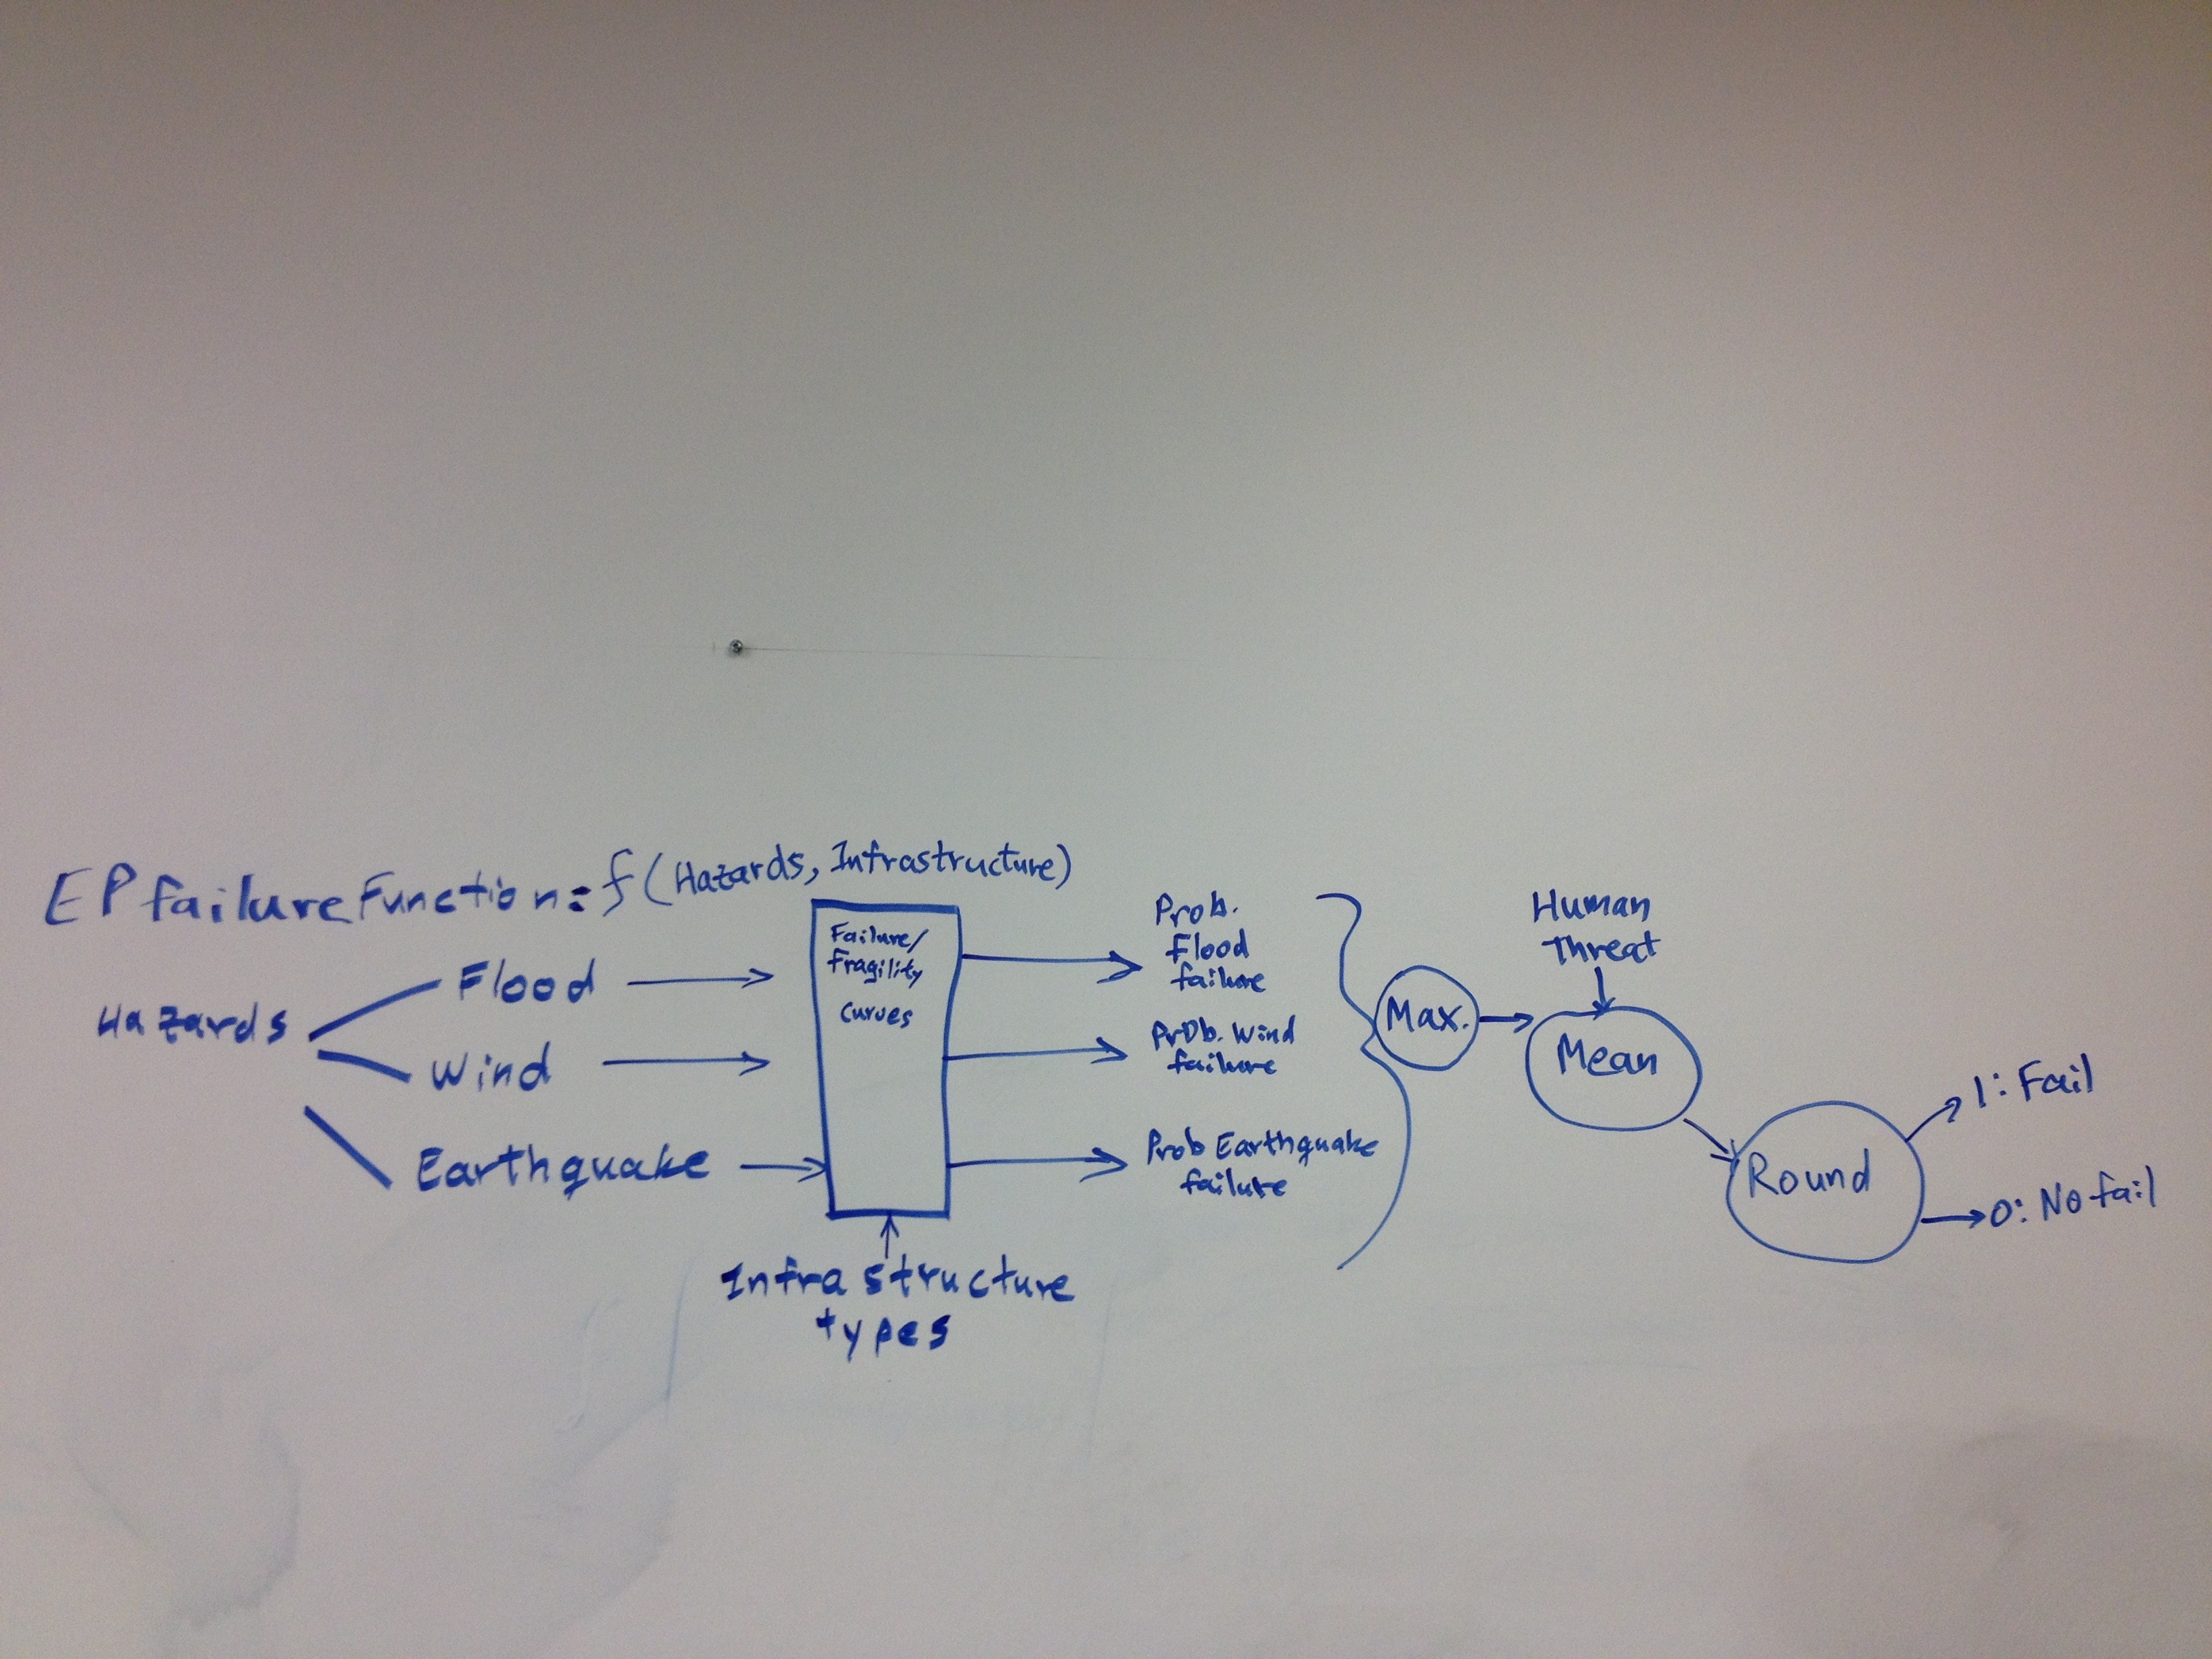 EP failure Function = f (Hazards, Infrastructure)
Hazards
Flood
Wind
Earthquake
Failure/
fragility
curves
Infrastructure
types
Prob.
flood
failure
Prob. Wind
failure
Prob Earthquake
failure
Max.
Human
Threat
Mean
Round
1: Fail
0: No fail